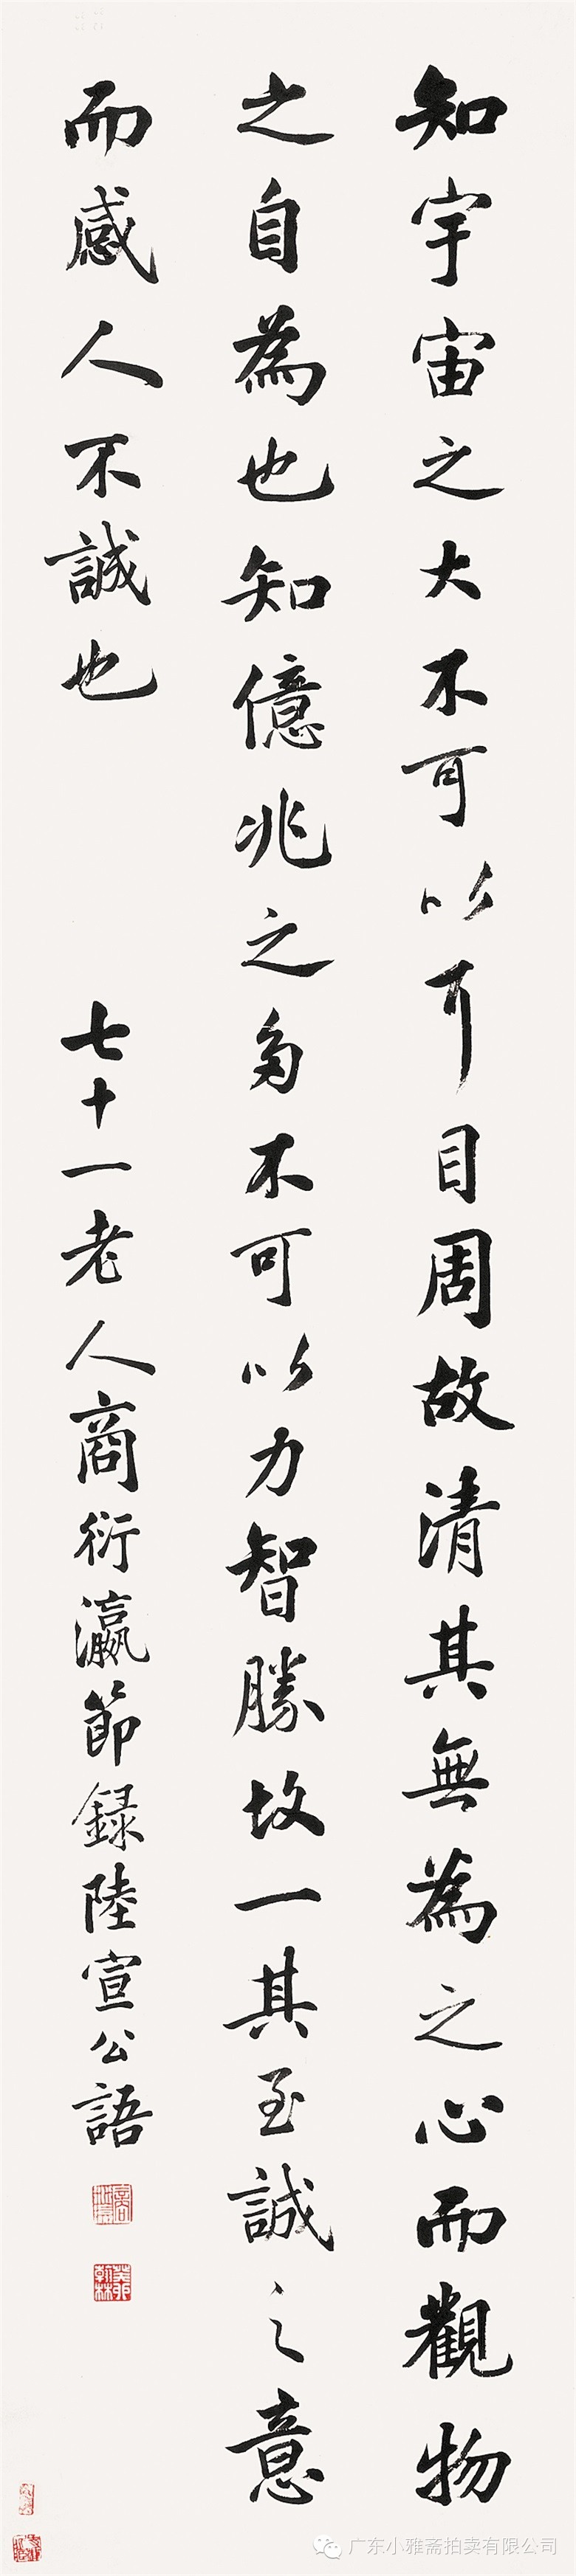 知宇宙之大不可以耳目周故清其無為之心而觀物
之自為也知億兆之多不可以力智勝故一其至誠之意
而感人不誠也
七十一老人商衍瀛節録陸宣公語
广东小雅斋拍卖有限公司